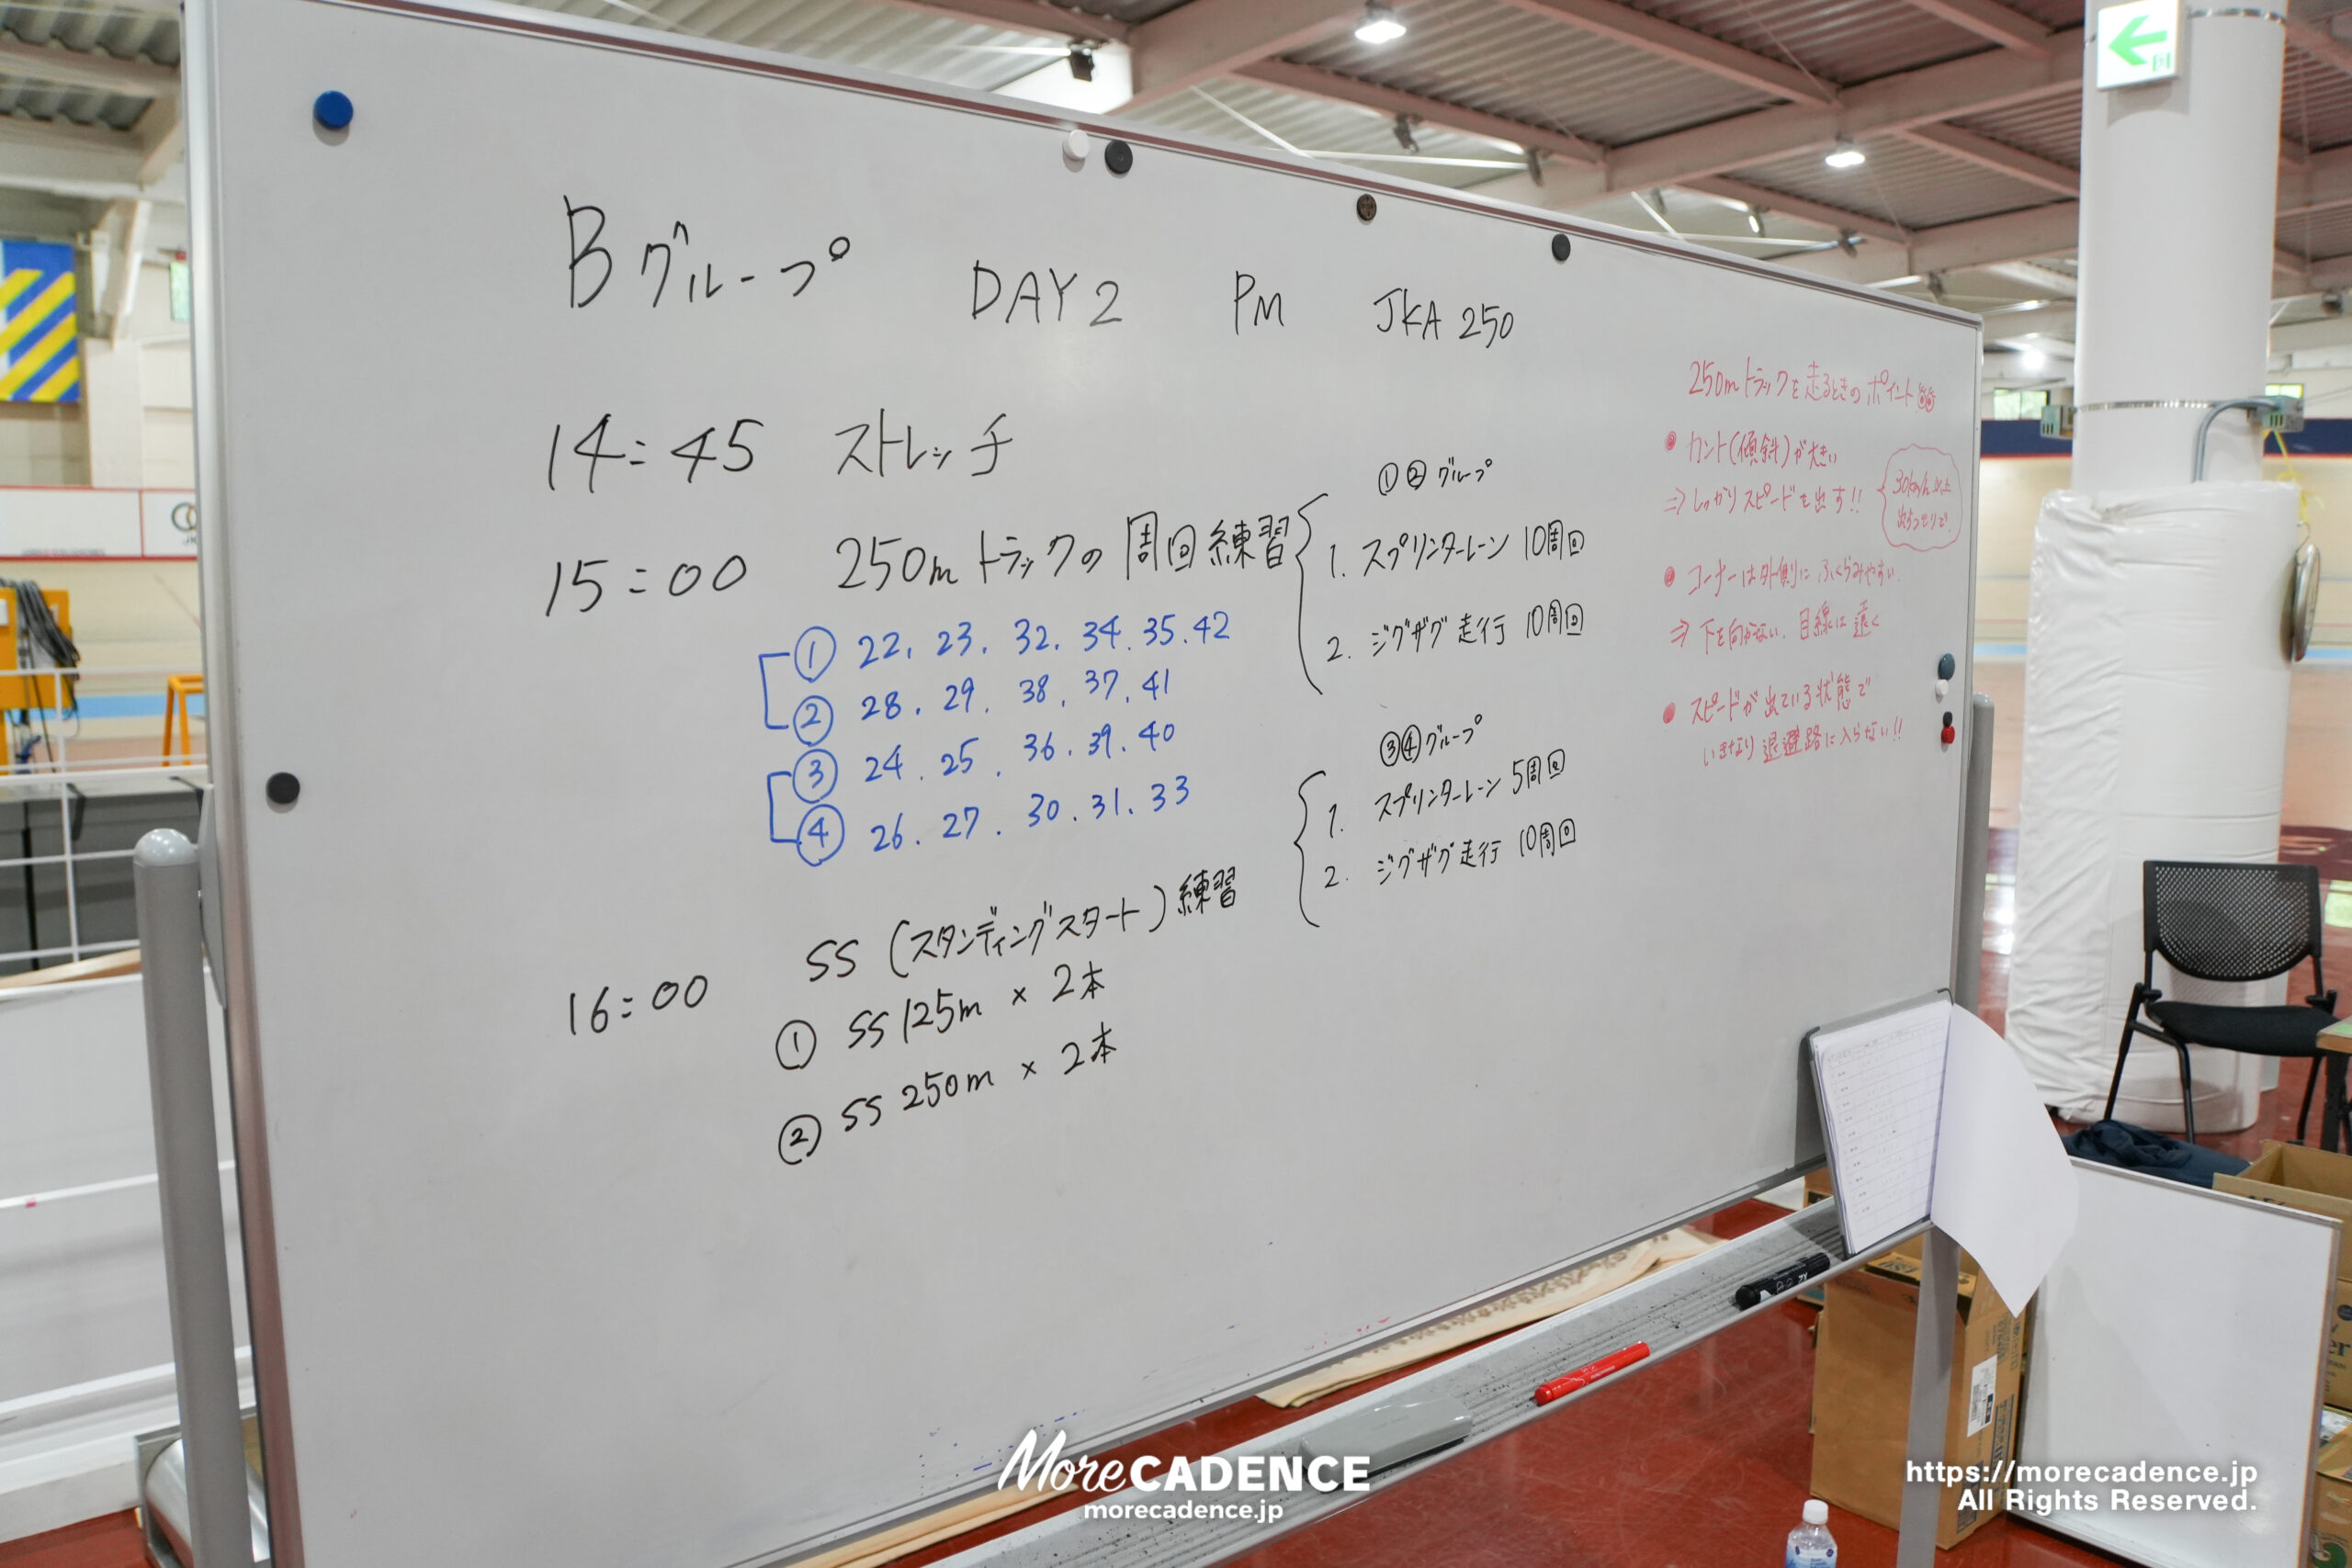 Bグループ DAY2 PM JKA 250
14:45 ストレッチ
15:00 250mトラックの周回練習
① 22, 23, 32, 34, 35, 42
② 28, 29, 38, 37, 41
③ 24, 25, 36, 39, 40
④ 26, 27, 30, 31, 33
①②グループ
1. スプリンターレーン 10周回
2. ジグザグ走行 10周回
③④グループ
1. スプリンターレーン 5周回
2. ジグザグ走行 10周回
16:00 SS(スタンディングスタート)練習
① SS 125m × 2本
② SS 250m × 2本
250mトラックを走るときのポイント
• カント(傾斜)が大きい
⇒しっかりスピードを出す!!
30km/h以上
出すつもりで
• コーナーは外側にふくらみやすい.
⇒下を向かない. 目線は遠く
• スピードが出ている状態で
いきなり退避路に入らない!!
More CADENCE
morecadence.jp
https://morecadence.jp
All Rights Reserved.